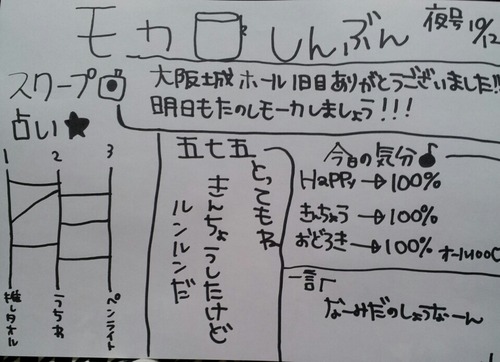 モカしんぶん
夜号10/12
スクープ
大阪城ホール1日目ありがとうございました!!
明日もたのしモーカしましょう!!!
占い★
1 2 3
推しタオル
うちわ
ペンライト
五七五
とってもね
きんちょうしたけど
ルンルンだ
今日の気分♪
HAPPy→100%
きんちょう→100%
おどろき→100%
オール100%
一言
なーみだのしょうなーん